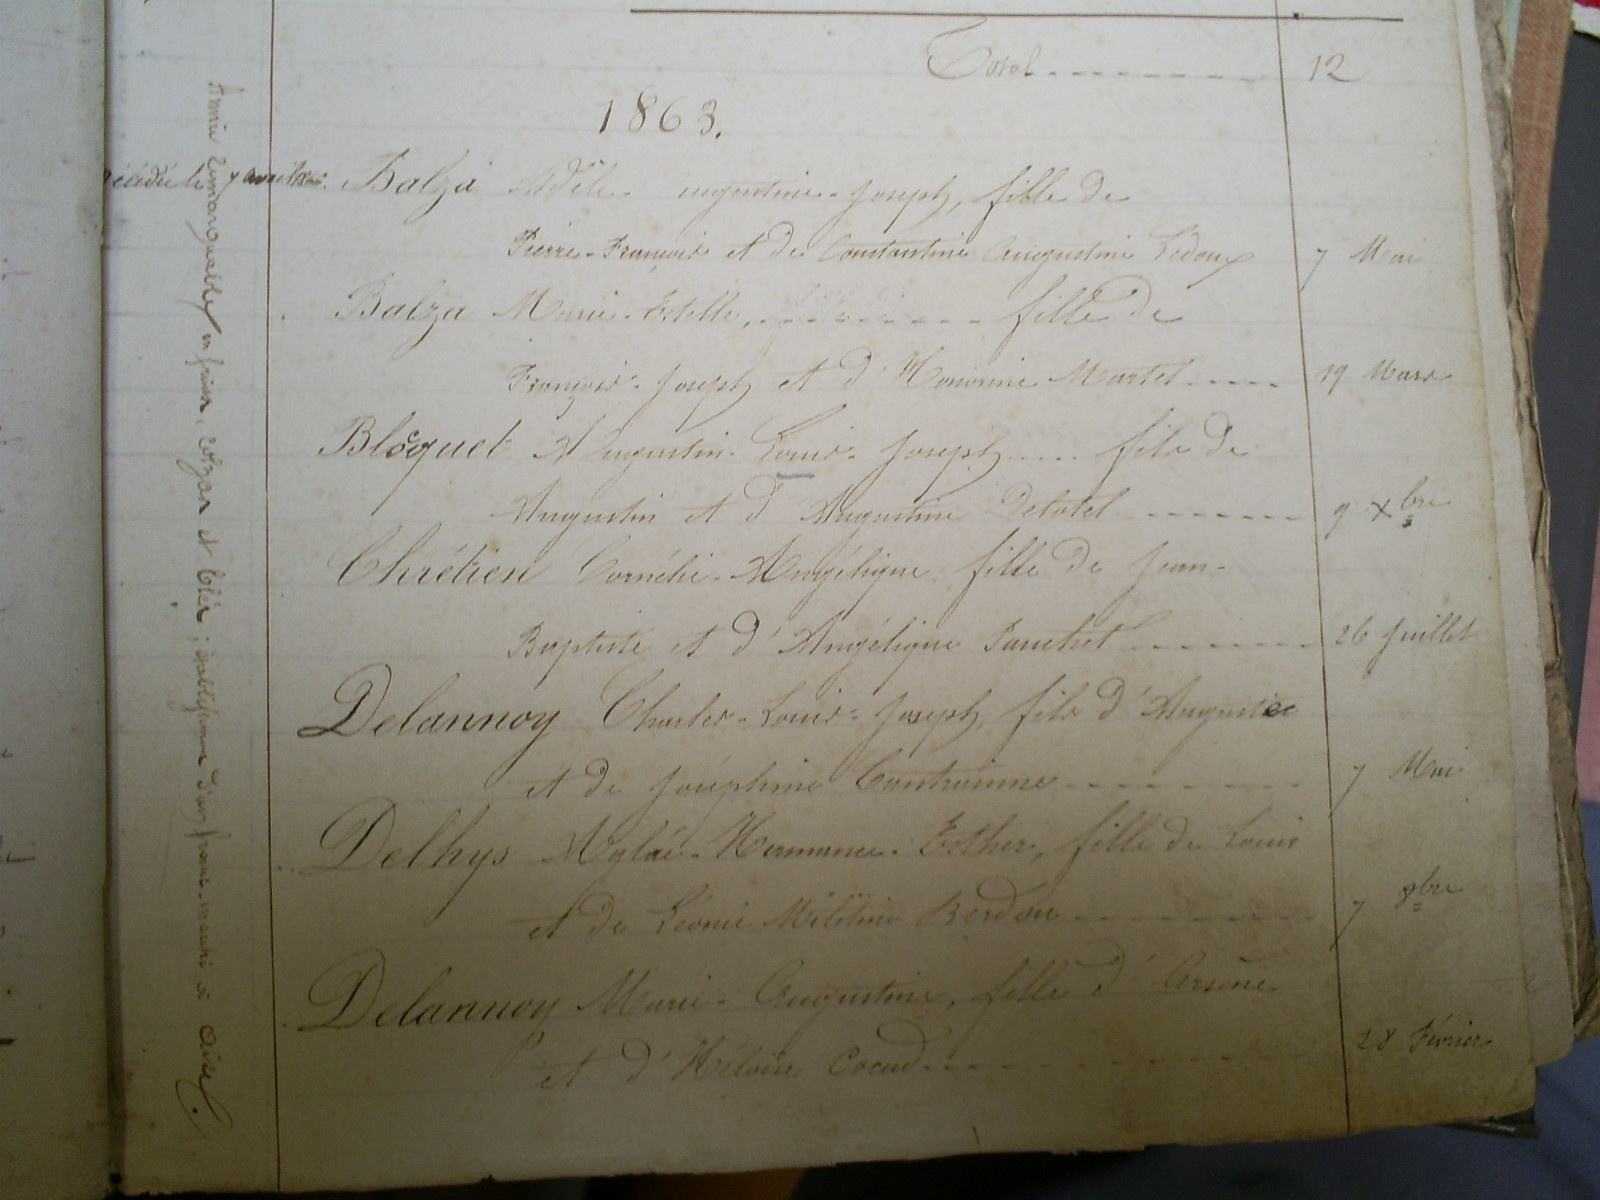 Total 12
1863.
décédé le 7 avril
Balza Adèle-Augustine-Joseph, fille de
Pierre-François et de Constantine Augustine Ledoux 7 Mai
Balza Marie-Estelle, fille de
François-Joseph et d'Honorine Martel 19 Mars
Blocquet Augustin-Louis-Joseph fils de
Augustin et d'Augustine Delotel 9 Xbre
Chrétien Cornélie-Angélique fille de Jean-
Baptiste et d'Angélique Panchet 26 Juillet
Delannoy Charles-Louis-Joseph, fils d'Auguste
et de Joséphine 7 Mai
Delhys Aglaé-Hermance-Esther, fille de Louis
et de Léonie Méldine Berdou 7 8bre
Delannoy Marie-Augustine, fille d'Arsène
et d'Héloïse Cocud 28 Février
Année remarquable en foins, colzas et blés ;